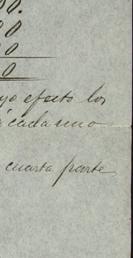 00.
00
00
0
yo efecto los
a cada uno
cuarta parte